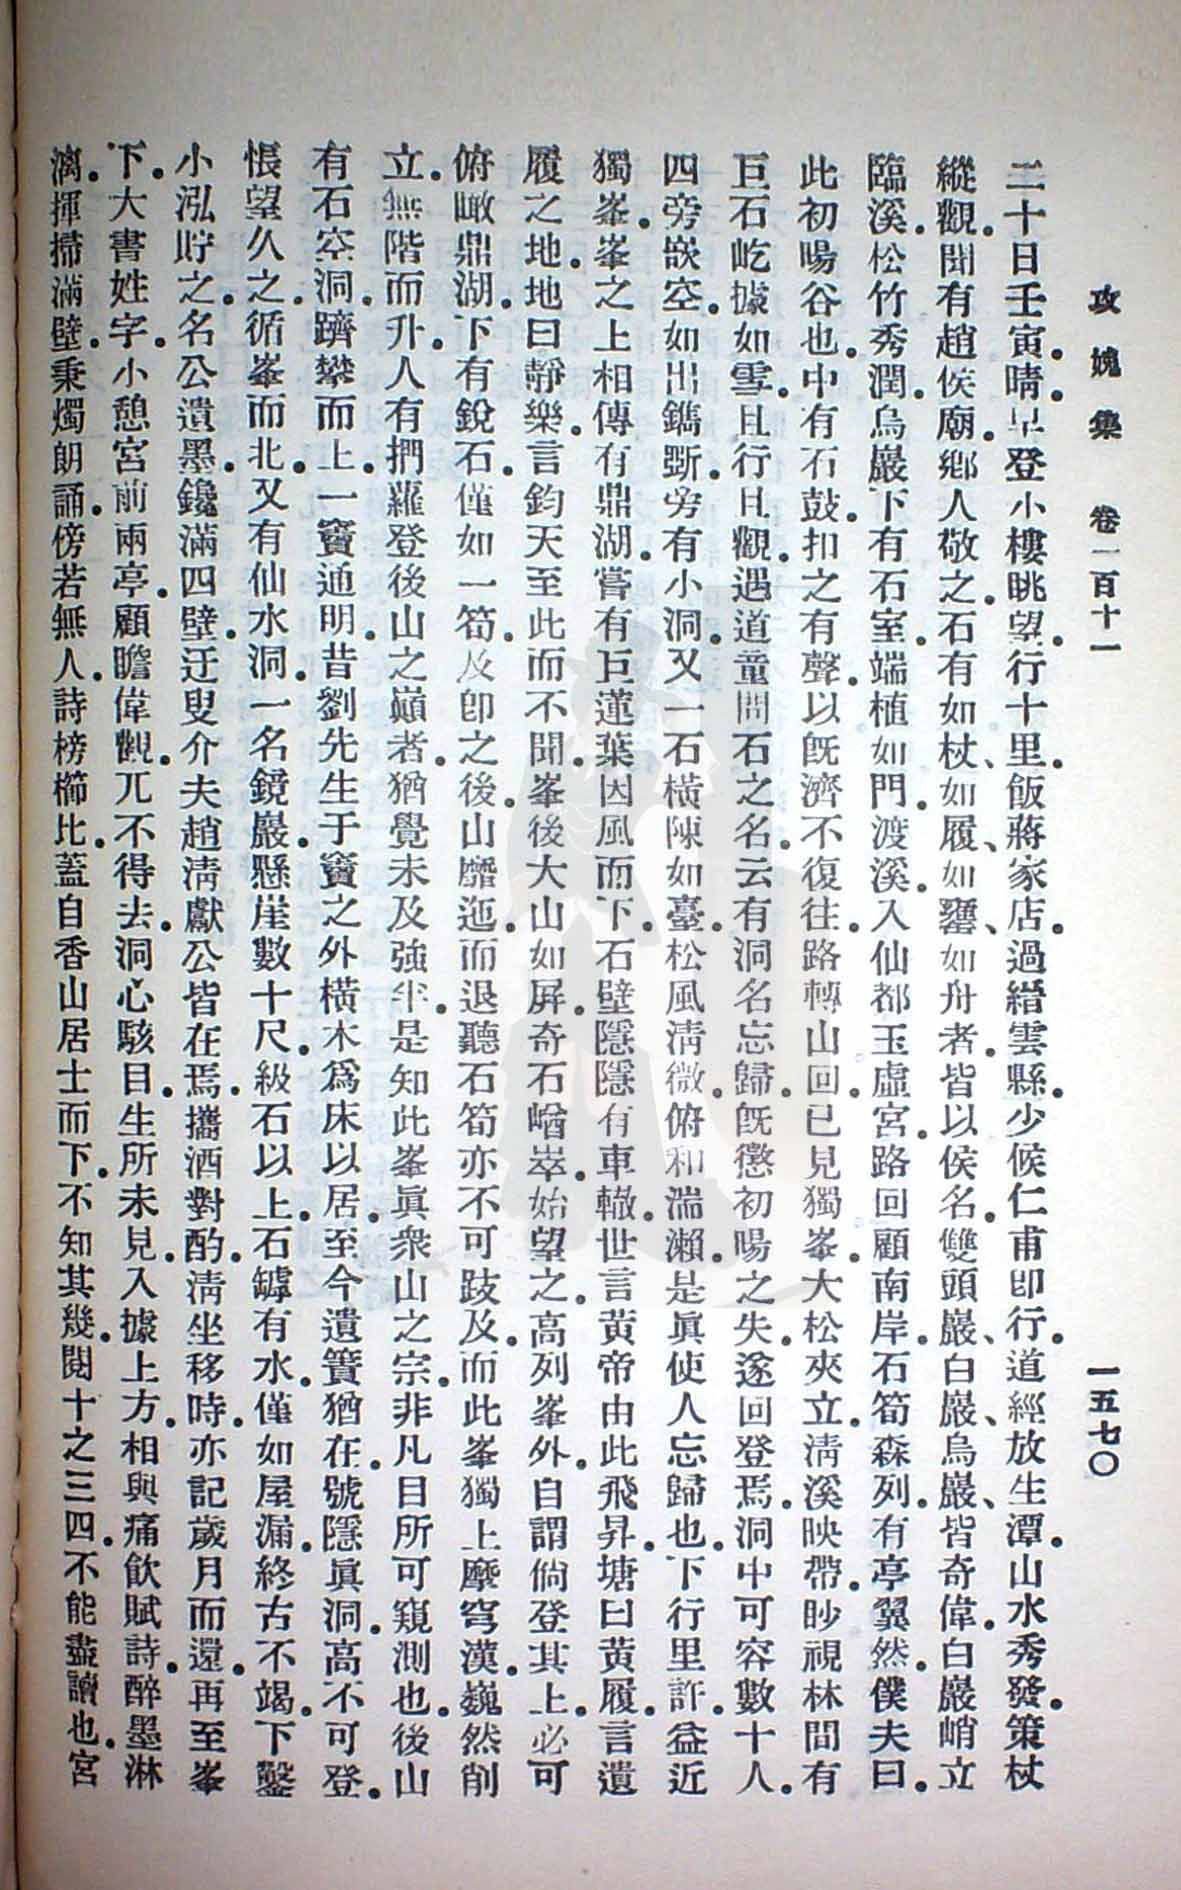 攻媿集　卷一百十一　一五七〇
二十日壬寅。晴。早登小樓眺望。行十里。飯蔣家店。過縉雲縣。少候仁甫卽行。道經放生潭。山水秀發。策杖
縱觀。聞有趙侯廟。鄉人敬之。石有如杖、如履、如甖、如舟者。皆以侯名。雙頭巖、白巖、烏巖、皆奇偉。白巖峭立
臨溪。松竹秀潤。烏巖下有石室。端植如門。渡溪。入仙都玉虛宮。路回顧南岸。石筍森列。有亭翼然。僕夫曰。
此初暘谷也。中有石鼓。扣之有聲。以旣濟不復往。路轉山回。已見獨峯。大松夾立。淸溪映帶。眇視林間有
巨石屹據如雪。且行且觀。遇道童問石之名。云有洞名忘歸。旣懲初暘之失。遂回登焉。洞中可容數十人。
四旁嵌空。如出鐫斲。旁有小洞。又一石橫陳如臺。松風淸微。俯和湍瀨。是眞使人忘歸也。下行里許。益近
獨峯。峯之上相傳有鼎湖。嘗有巨蓮葉因風而下。石壁隱隱有車轍。世言黃帝由此飛昇。塘曰黃履。言遺
履之地。地曰靜樂。言鈞天至此而不聞。峯後大山如屛。奇石崷崒。始望之。高列峯外。自謂倘登其上。必可
俯瞰鼎湖。下有銳石。僅如一筍。及卽之。後山靡迤而退聽。石筍亦不可跂及。而此峯獨上摩穹漢。巍然削
立。無階而升。人有捫蘿登後山之巔者。猶覺未及強半。是知此峯眞衆山之宗。非凡目所可窺測也。後山
有石空洞。躋攀而上。一竇通明。昔劉先生于竇之外橫木爲床以居。至今遺簣猶在。號隱眞洞。高不可登。
悵望久之。循峯而北。又有仙水洞。一名鏡巖。懸崖數十尺。級石以上。石罅有水。僅如屋漏。終古不竭。下鑿
小泓貯之。名公遺墨。鑱滿四壁。迂叟介夫趙淸獻公皆在焉。攜酒對酌。淸坐移時。亦記歲月而還。再至峯
下。大書姓字。小憩宮前兩亭。顧瞻偉觀。兀不得去。洞心駭目。生所未見。入據上方。相與痛飮賦詩。醉墨淋
漓。揮掃滿壁。秉燭朗誦。傍若無人。詩榜櫛比。蓋自香山居士而下。不知其幾。閱十之三四。不能盡讀也。宮